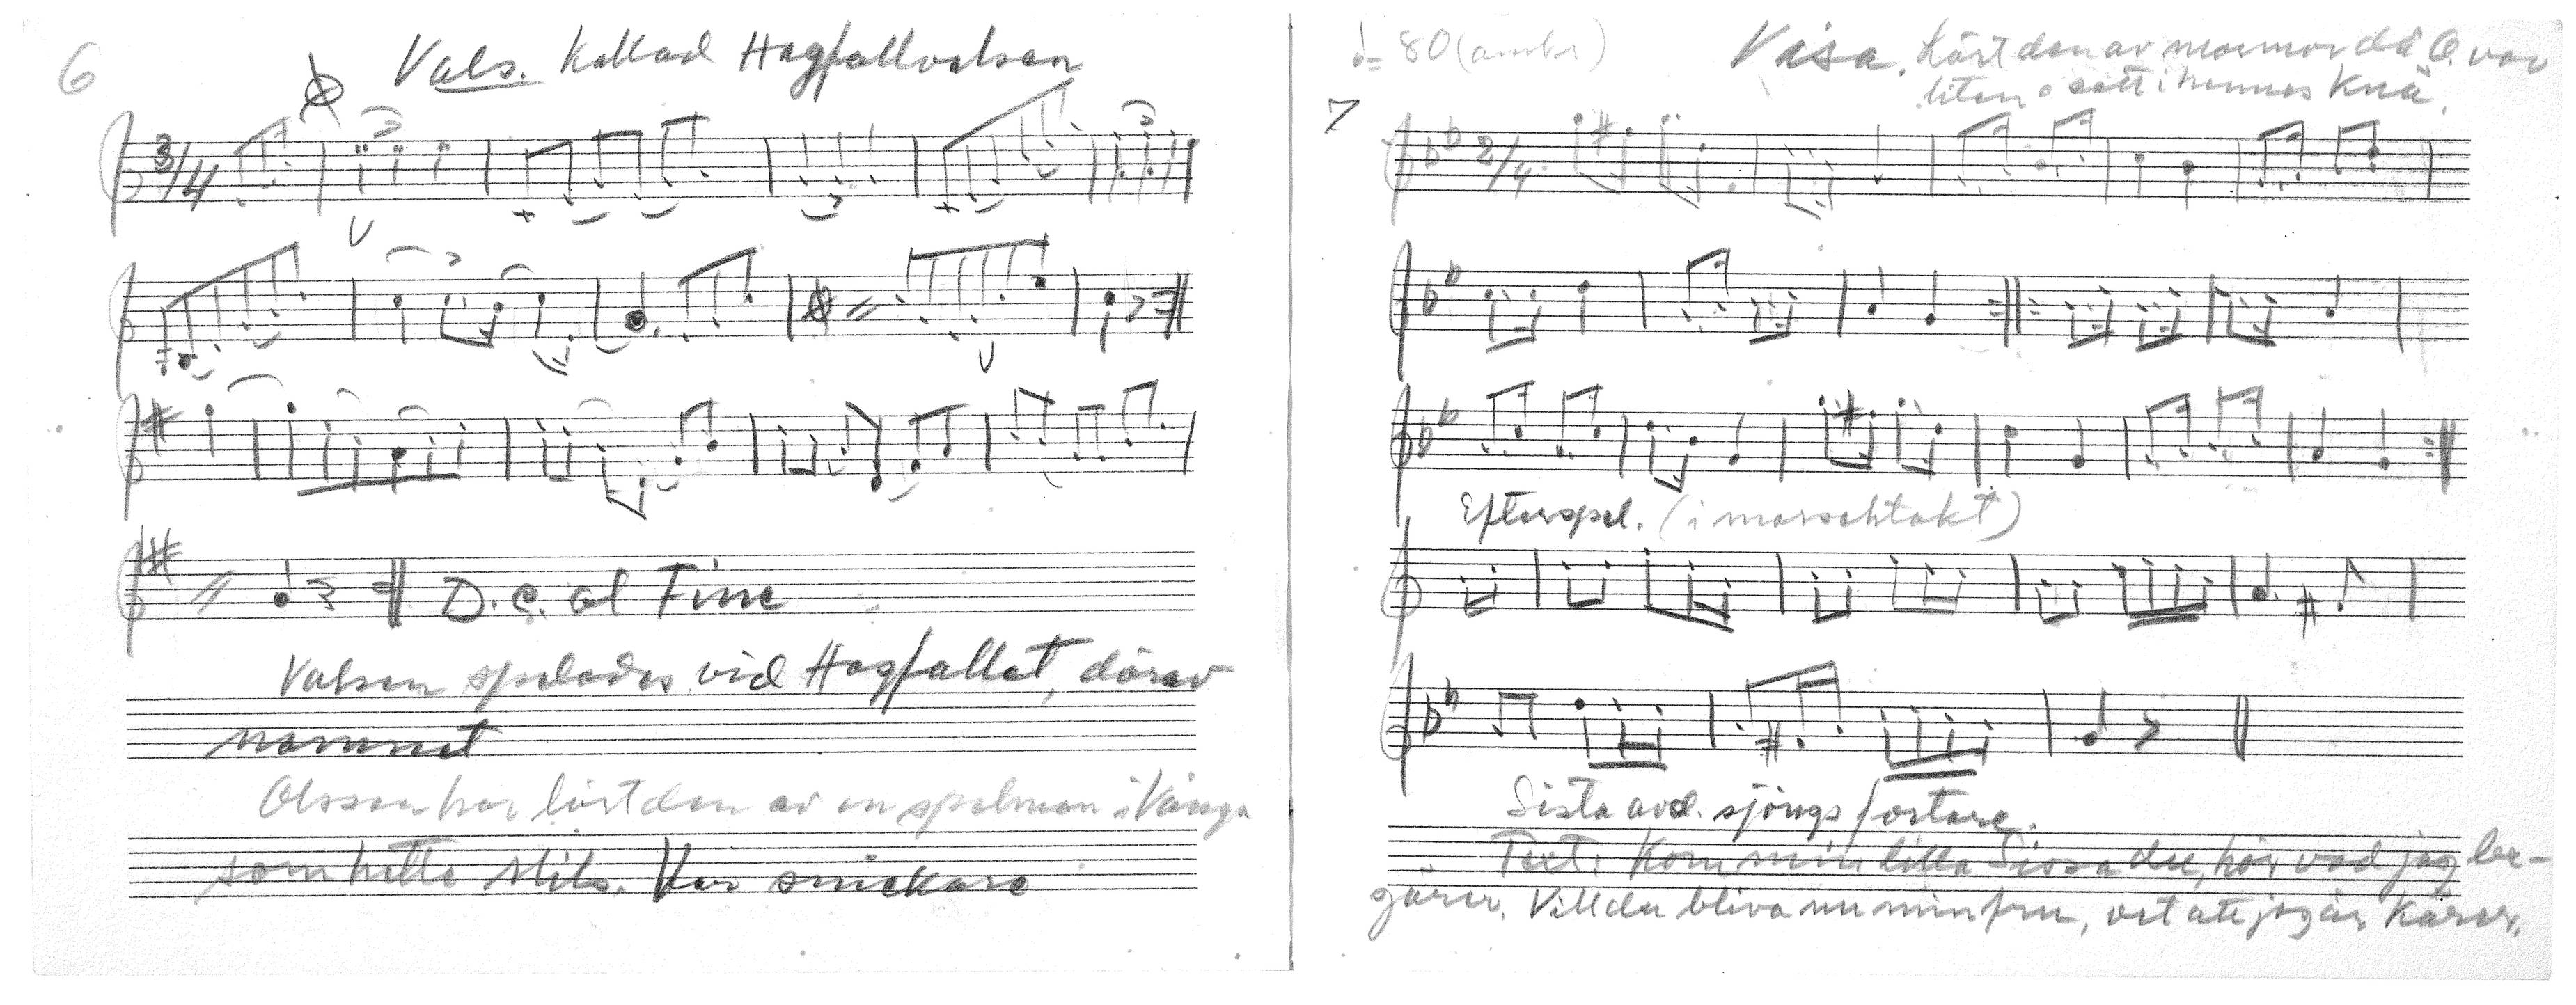 6
Vals. kallad Hagfallvalsen
3/4
D.C. al Fine
Valsen spelades vid Hagfallet, därav
namnet
Olsson har lärt den av en spelman i Vånga
som hette Nils. Var snickare
♩= 80 (ambr)
Visa. Lärt den av mormor då O. var
liten o satt i hennes knä.
7
2/4
Efterspel. (i marschtakt)
Sista avd. sjöngs fortare.
Text: Kom min lilla Sissa du, hör vad jag be-
gärer. Vill du bliva nu min fru, vet att jag är kärer.